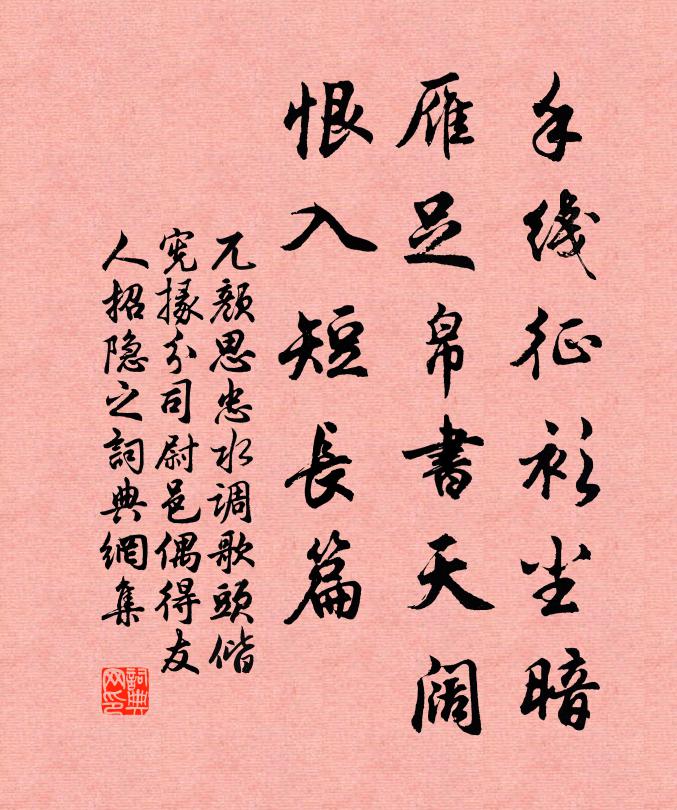 手线征衫尘暗
雁足帛书天阔
恨入短長篇
兀颜思忠水调歌頭偕
宪掾分司尉邑偶得友
人招隐之詞典網集
詞典网印